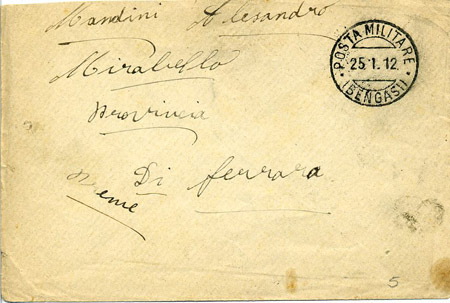 Mandini Alesandro
Mirabello
Provincia
Di ferrara
Preme
POSTA MILITARE
25.1.12
(BENGASI)
5